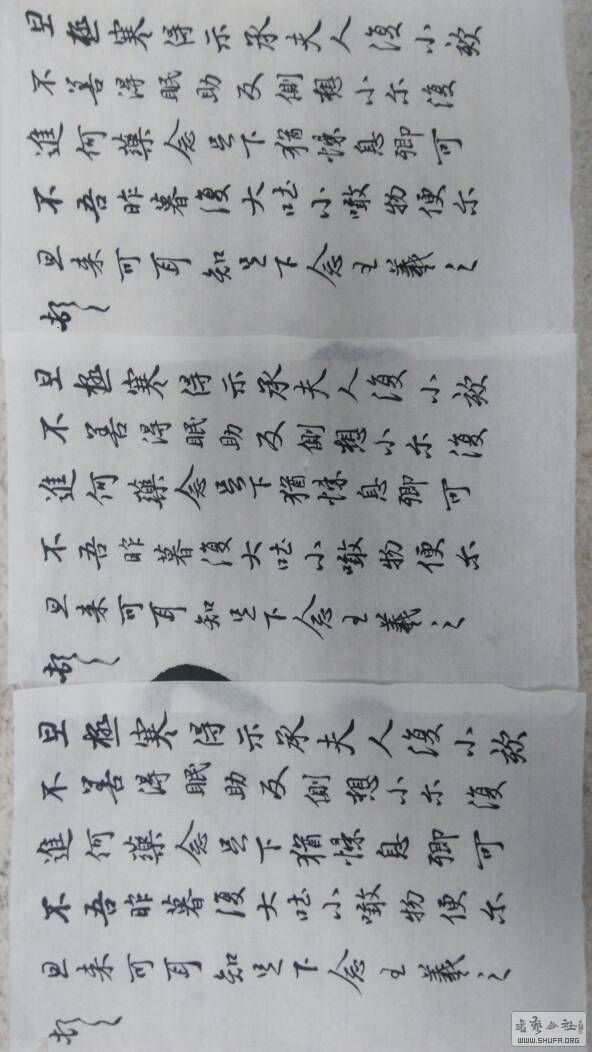 旦極寒得示承夫人復小欬
不善得眠助反側想小尔復
進何藥念足下猶悚息卿可
不吾昨暮復大吐小噉物便尔
旦来可耳知足下念王羲之
頓首
旦極寒得示承夫人復小欬
不善得眠助反側想小尔復
進何藥念足下猶悚息卿可
不吾昨暮復大吐小噉物便尔
旦来可耳知足下念王羲之
頓首
旦極寒得示承夫人復小欬
不善得眠助反側想小尔復
進何藥念足下猶悚息卿可
不吾昨暮復大吐小噉物便尔
旦来可耳知足下念王羲之
頓首
WWW.SHUFA.ORG